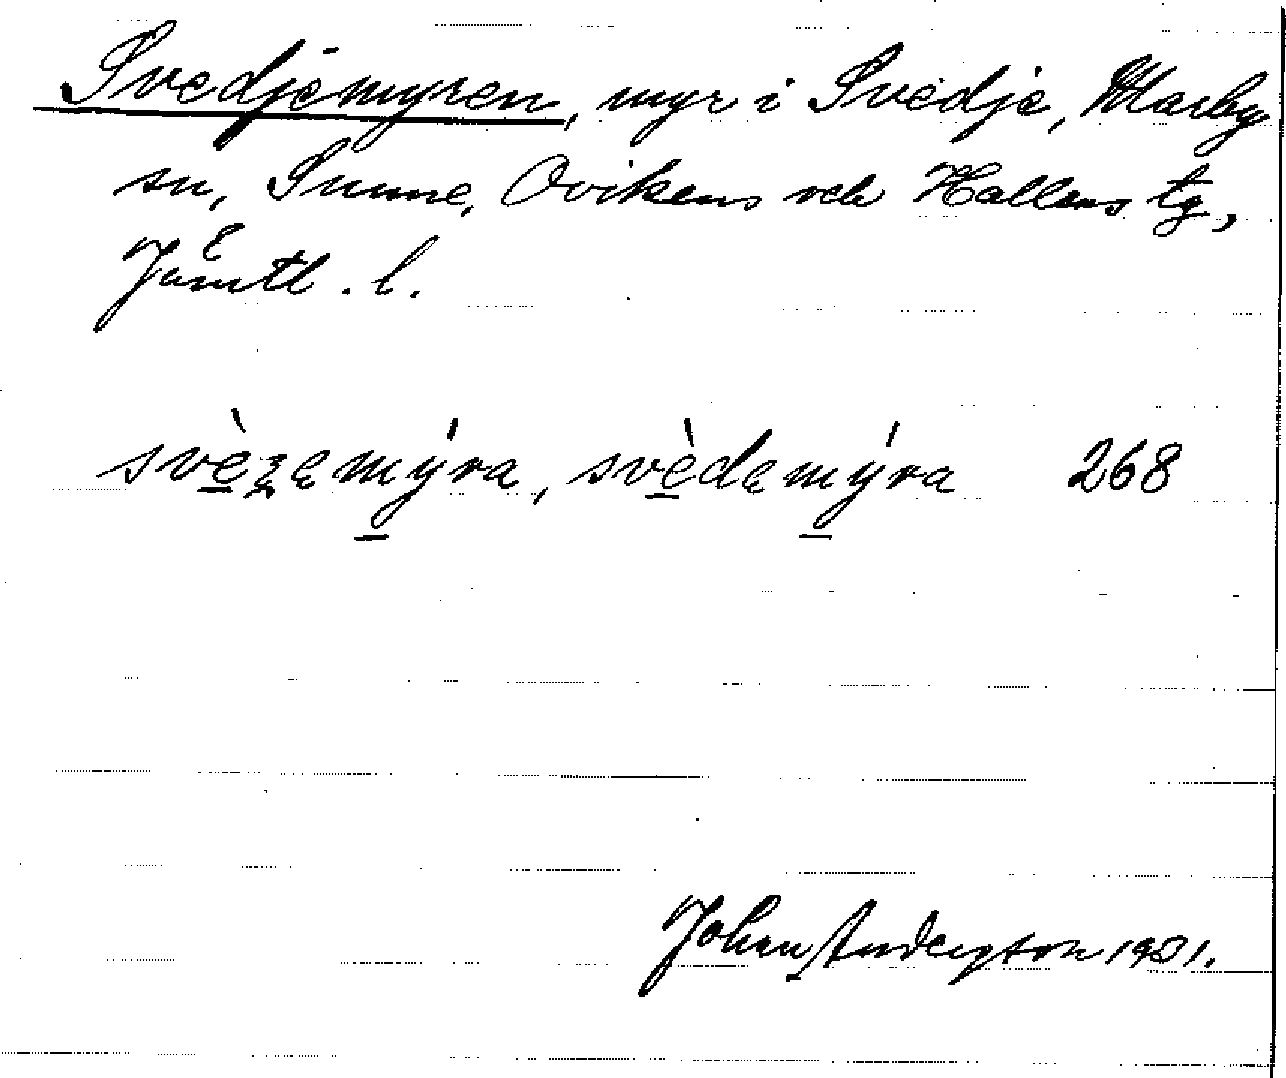 Svedjemyren, myr i Svedje, Marby
sn, Sunne, Ovikens och Hallens tg,
Jämtl. l.
svèʒemýra, svèdemýra 268
Johan Anderszon 1931.